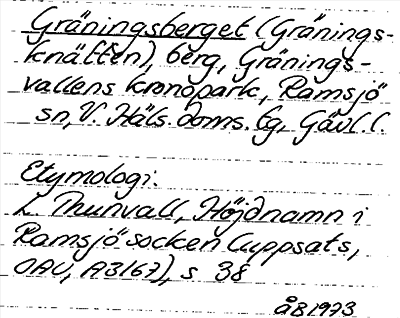 Gräningsberget (Gränings-
knätten), berg, Gränings-
vallens kronopark, Ramsjö
sn, V. Häls. doms. tg, Gävl. l.
Etymologi:
L. Thunvall, Höjdnamn i
Ramsjö socken (uppsats,
OAU, A3167), s 38
ÅB 1973